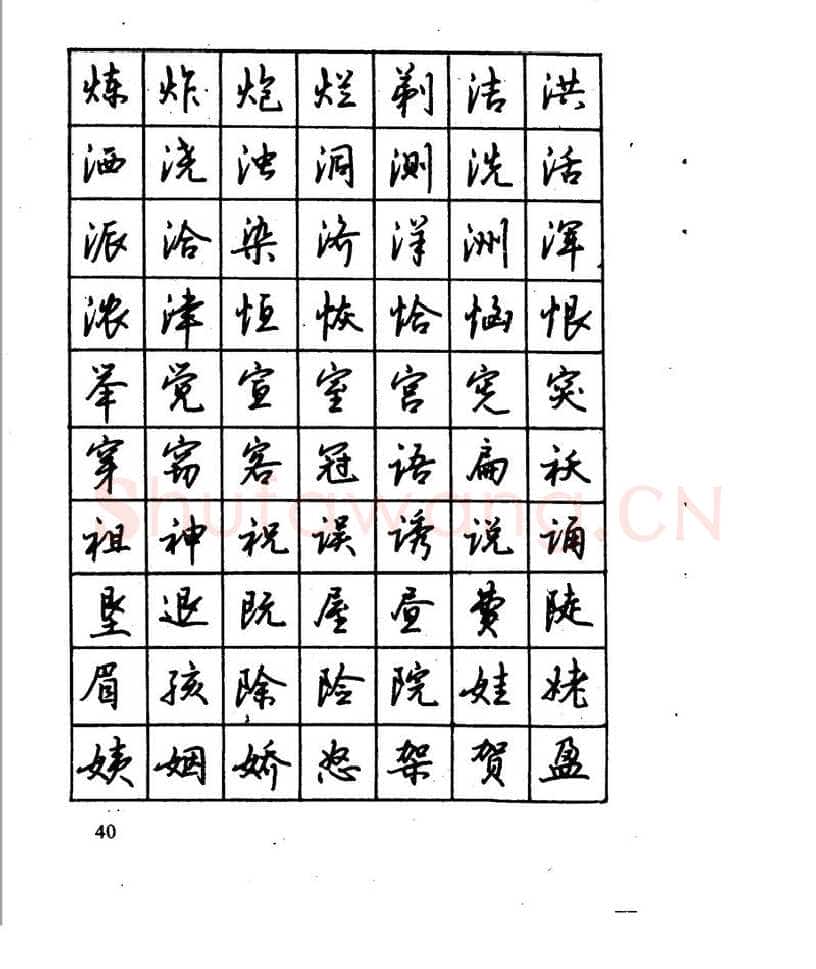 炼 炸 炮 烂 剃 洁 洪
洒 浇 浊 洞 测 洗 活
派 洽 染 济 洋 洲 浑
浓 津 恒 恢 恰 恼 恨
举 觉 宣 室 宫 宪 突
穿 窃 客 冠 语 扁 袄
祖 神 祝 误 诱 说 诵
垦 退 既 屋 昼 费 陡
眉 孩 除 险 院 娃 姥
姨 姻 娇 怒 架 贺 盈
Shufawang.CN
40